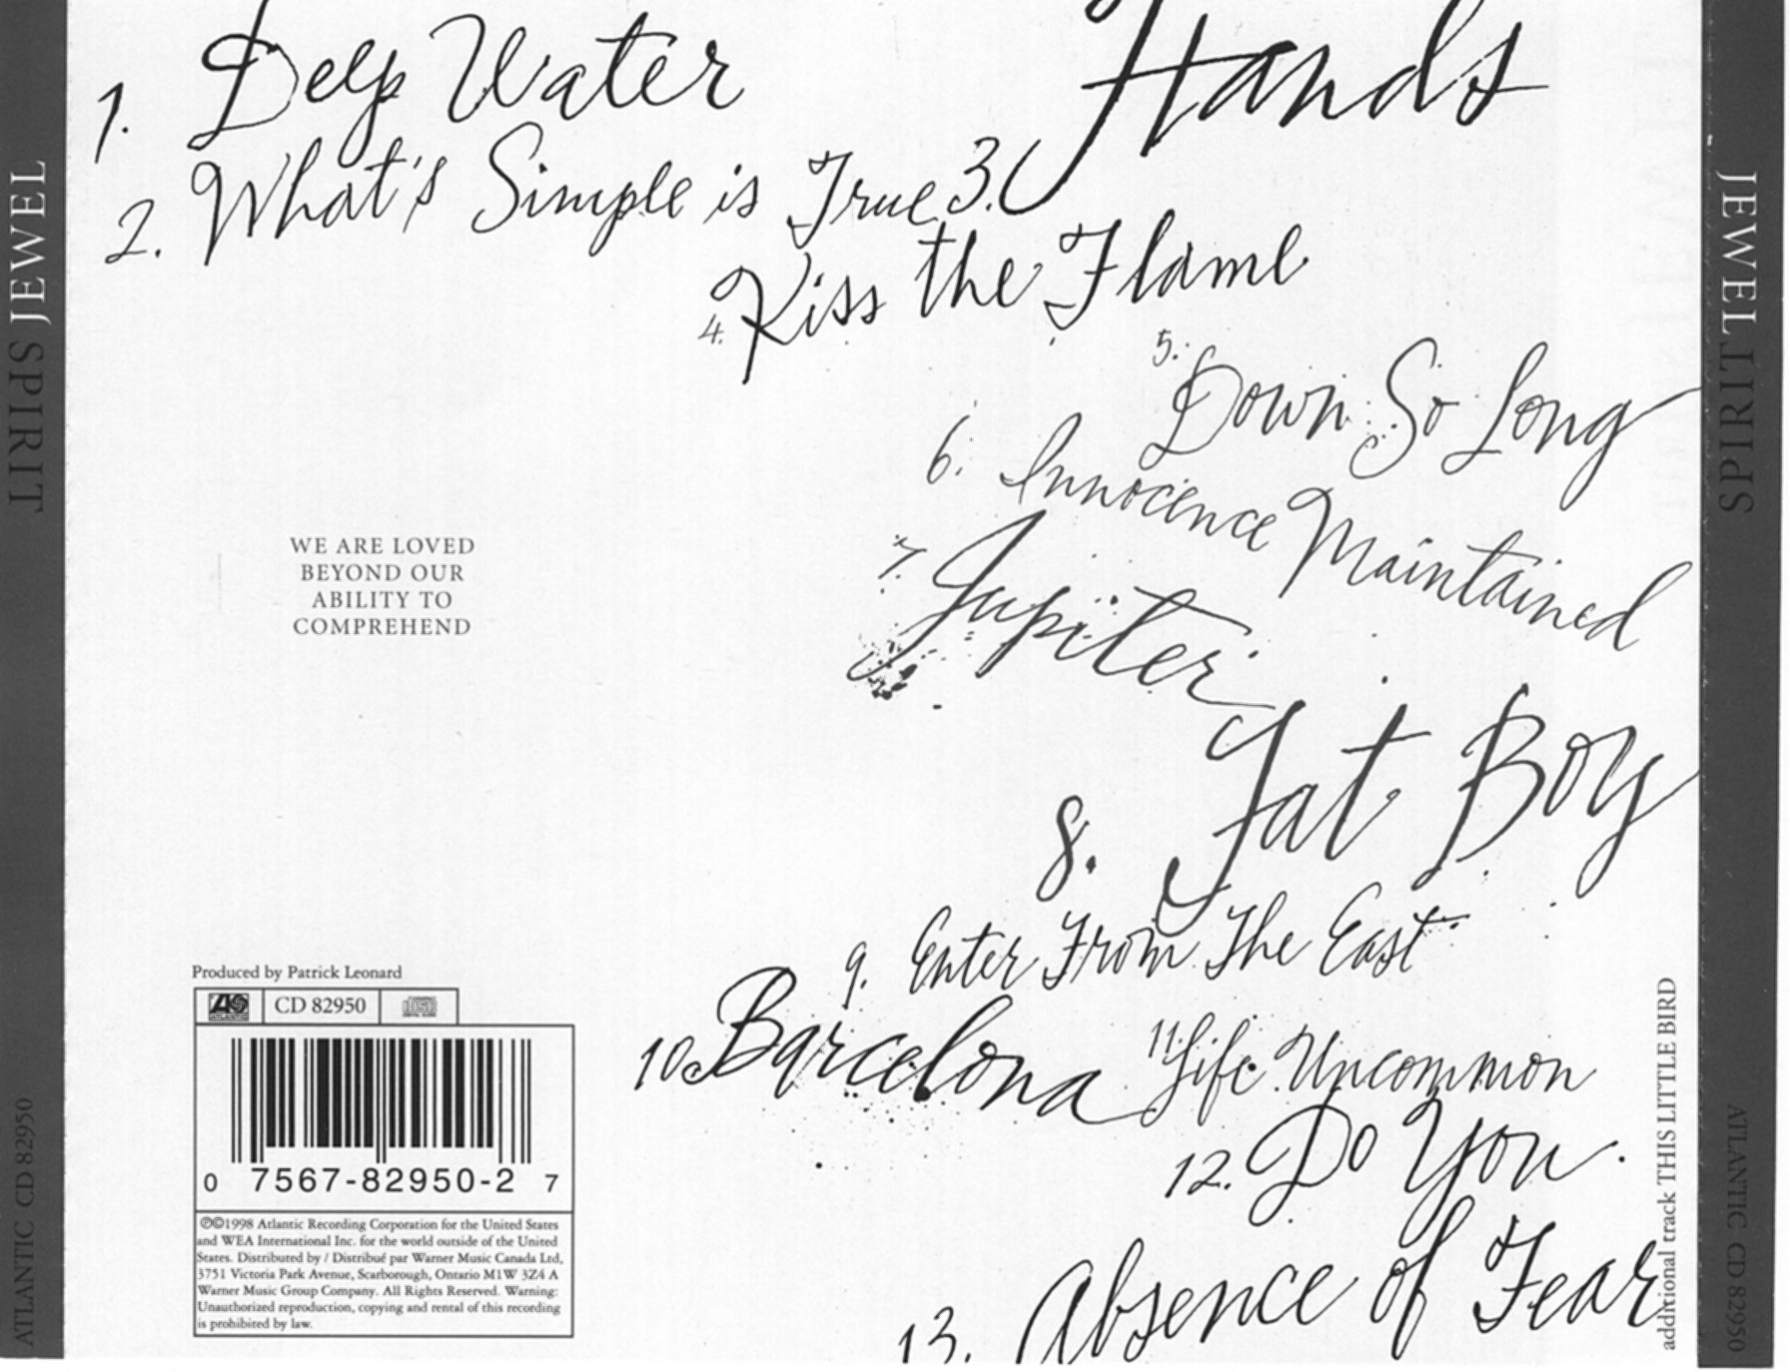 JEWEL SPIRIT
ATLANTIC CD 82950
1. Deep Water
2. What's Simple is True
3. Hands
4. Kiss the Flame
5. Down So Long
6. Innocence Maintained
7. Jupiter
8. Fat Boy
9. Enter From The East
10. Barcelona
11. Life Uncommon
12. Do You
13. Absence of Fear
additional track THIS LITTLE BIRD
WE ARE LOVED
BEYOND OUR
ABILITY TO
COMPREHEND
Produced by Patrick Leonard
ATLANTIC
CD 82950
0 7567-82950-2 7
℗©1998 Atlantic Recording Corporation for the United States
and WEA International Inc. for the world outside of the United
States. Distributed by / Distribué par Warner Music Canada Ltd,
3751 Victoria Park Avenue, Scarborough, Ontario M1W 3Z4 A
Warner Music Group Company. All Rights Reserved. Warning:
Unauthorized reproduction, copying and rental of this recording
is prohibited by law.
JEWEL SPIRIT
ATLANTIC CD 82950